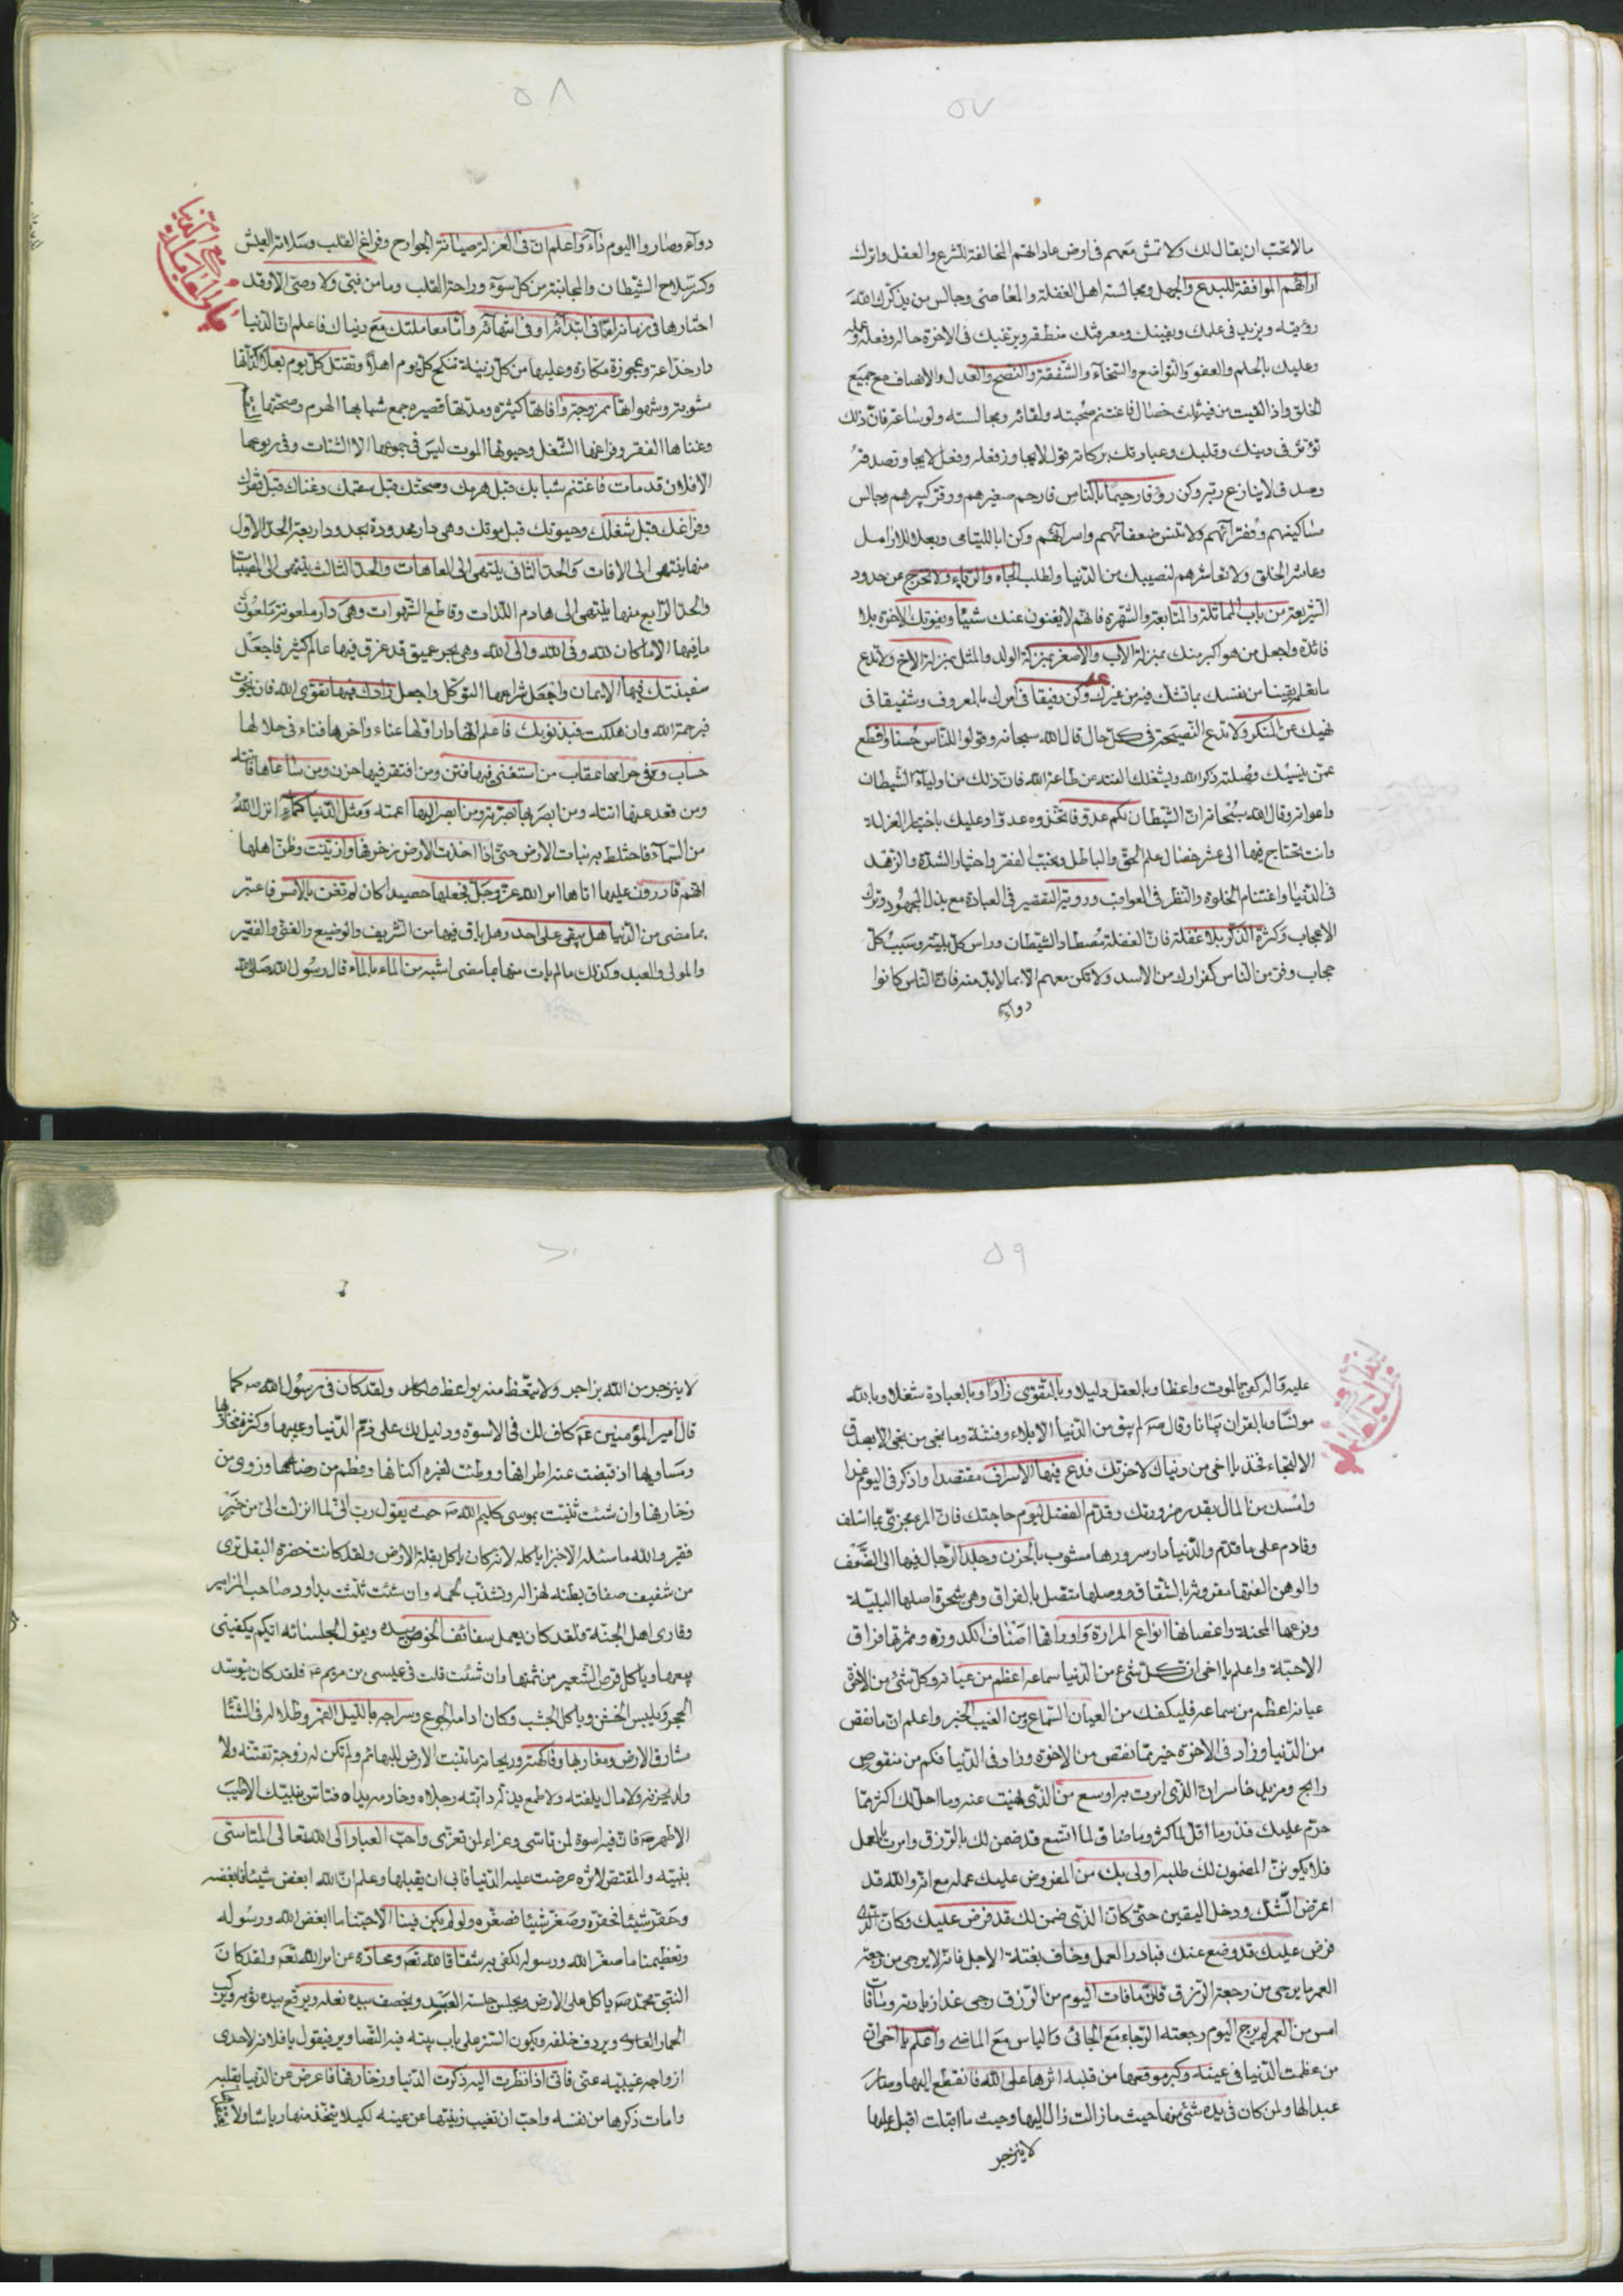 ٥٧
ما لا تحب ان يقال لك ولا تمش معهم فى ارض عاداتهم المخالفة للشرع والعقل واترك
ارائهم الموافقة للبدع والجهل ومجالسة اهل الغفلة والمعاصى وجالس من يذكرك الله
رؤيته ويزيد فى علمك ويقينك ومعرفتك منطقه ويرغبك فى الاخرة حاله وفعله وعمله
وعليك بالحلم والعفو والتواضع والسخآء والشفقة والنصح والعدل والانصاف مع جميع
الخلق واذا لقيت من فيه ثلث خصال فاغتنم صحبته ولقائه ومجالسته ولو ساعة فان ذلك
تؤثر فى دينك وقلبك وعبادتك بركاته قول لا يجاوز فعله وفعل لا يجاوز صدقه
وصدق لا ينازع ربه وكن رؤفا رحيما بالناس فارحم صغيرهم ووقر كبيرهم وجالس
مساكينهم وفقرآئهم ولا تنس ضعفائهم واسرآئهم وكن ابا لليتامى وبعلا للارامل
وعاشر الخلق ولا تعاشرهم لنصيبك من الدنيا ولطلب الجاه والريآء ولا تخرج عن حدود
الشريعة من باب المماثلة والمتابعة والشهرة فانهم لا يغنون عنك شيئا ويفوتك الاخرة بلا
فائدة واجعل من هو اكبر منك بمنزلة الاب والاصغر بمنزلة الولد والمثل بمنزلة الاخ ولا تدع
ما تعلم يقينا من نفسك بما تشك فيه من غيرك وكن رفيقا فى امرك بالمعروف وشفيقا فى
نهيك عن المنكر ولا تدع النصيحة فى كل حال قال الله سبحانه وقولوا للناس حسنا واقطع
عمن ينسيك وصلته ذكر الله ويشغلك الفته عن طاعة الله فان ذلك من اوليآء الشيطان
واعوانه وقال الله سبحانه ان الشيطان لكم عدو فاتخذوه عدوا وعليك باختيار العزلة
وانت تحتاج فيها الى عشر خصال علم الحق والباطل وتحبب الفقر واختيار الشدة والزهد
فى الدنيا واغتنام الخلوة والنظر فى العواقب ورؤية التقصير فى العبادة مع بذل المجهود وترك
الاعجاب وكثرة الذكر بلا غفلة فان الغفلة مصطاد الشيطان وراس كل بلية وسبب كل
حجاب وفر من الناس كفرارك من الاسد ولا تكن معهم الا بما لا بد منه فان الناس كانوا
دوآء
٥٨
دوآء وصاروا اليوم دآء واعلم ان فى العزلة صيانة الجوارح وفراغ القلب وسلامة العيش
وكسر سلاح الشيطان والمجانبة من كل سوء وراحة القلب وما من نبى ولا وصى الا وقد
اختارها فى زمانه اما فى ابتدائه او فى انتهائه واما معاملتك مع دنياك فاعلم ان الدنيا
دار خداعة وعجوزة مكارة وعليها من كل زينة تنكح كل يوم اهلا وتقتل كل يوم بعلا لذاتها
مشوبة وشهواتها ممزوجة وافاتها كثيرة ومدتها قصيرة جمع شبابها الهرم وصحتها
وغناها الفقر وفراغها الشغل وحيوتها الموت ليس فى جموعها الا الشتات وفى ربوعها
الا فلان قد مات فاغتنم شبابك قبل هرمك وصحتك قبل سقمك وغناك قبل فقرك
وفراغك قبل شغلك وحيوتك قبل موتك وهى دار محدودة بحدود اربعة الحد الاول
منها ينتهى الى الافات والحد الثانى ينتهى الى العاهات والحد الثالث ينتهى الى المصيبات
والحد الرابع منها ينتهى الى هادم اللذات وقاطع الشهوات وهى دار ملعونة ملعون
ما فيها الا ما كان لله وفى الله والى الله وهى بحر عميق قد غرق فيها عالم كثير فاجعل
سفينتك فيها الايمان واجعل شراعها التوكل واجعل زادك فيها تقوى الله فان نجوت
فبرحمة الله وان هلكت فبذنوبك فاعلم انها دار اولها عناء واخرها فناء فى حلالها
حساب وفى حرامها عقاب من استغنى فيها فتن ومن افتقر فيها حزن ومن ساعاها فاتته
ومن قعد عنها اتته ومن ابصر بها بصرته ومن ابصر اليها اعمته ومثل الدنيا كمآء انزل الله
من السمآء فاختلط به نبات الارض حتى اذا اخذت الارض زخرفها وازينت وظن اهلها
انهم قادرون عليها اتاها امر الله عز وجل فجعلها حصيدا كان لم تغن بالامس فاعتبر
بما مضى من الدنيا هل يبقى على احد وهل باق فيها من الشريف والوضيع والغنى والفقير
والمولى والعبد وكذلك ما لم يات منها بما مضى اشبه من المآء بالمآء قال رسول الله صلى الله
٥٩
عليه واله كفى بالموت واعظا وبالعقل دليلا وبالتقوى زادا وبالعبادة شغلا وبالله
مونسا وبالقران بيانا وقال لم يبق من الدنيا الا بلاء وفتنة وما نجى من نجى الا بصدق
الالتجاء فخذ يا اخى من دنياك لاخرتك فدع فيها الاسراف مقتصدا واذكر فى اليوم غدا
وامسك من المال بقدر ضرورتك وقدم الفضل ليوم حاجتك فان المرء مجزى بما اسلف
وقادم على ما قدم والدنيا دار سرورها مشوب بالحزن وجلد الرجال فيها الى الضعف
والوهن الفتها مقرونة بالشقاق ووصلها متصل بالفراق وهى شجرة اصلها البلية
وفرعها المحنة واغصانها انواع المرارة واوراقها اصناف الكدورة وثمرتها فراق
الاحبة واعلم يا اخى ان كل شئ من الدنيا سماعه اعظم من عيانه وكل شئ من الاخرة
عيانه اعظم من سماعه فليكفك من العيان السماع ومن الغيب الخبر واعلم ان ما نقص
من الدنيا وزاد فى الاخرة خير مما نقص من الاخرة وزاد فى الدنيا فكم من منقوص
رابح ومزيد خاسر ان الذى امرت به اوسع من الذى نهيت عنه وما احل لك اكثر مما
حرم عليك فذر ما اقل لما كثر وما ضاق لما اتسع قد ضمن لك بالرزق وامرت بالعمل
فلا يكونن المضمون لك طلبه اولى بك من المفروض عليك عمله مع انه والله قد
اعرض الشك ودخل اليقين حتى كان الذى ضمن لك قد فرض عليك وكان الذى
فرض عليك قد وضع عنك فبادر العمل وخاف بغتة الاجل فانه لا يرجى من رجعة
العمر ما يرجى من رجعة الرزق فان ما فات اليوم من الرزق رجى غدا زيادته وما فات
امس من العمر لم يرج اليوم رجعته الرجاء مع الجائى والياس مع الماضى واعلم يا اخى ان
من عظمت الدنيا فى عينه وكبر موقعها من قلبه اثرها على الله فانقطع اليها وصار
عبدا لها ولمن كان فى يده شئ منها حيث ما زالت زال اليها وحيث ما اقبلت اقبل عليها
لا ينزجر
٦٠
لا ينزجر من الله بزاجر ولا يتعظ منه بواعظ ولقد كان فى رسول الله كما
قال امير المؤمنين ع كاف لك فى الاسوة ودليل لك على ذم الدنيا وعيبها وكثرة مخازيها
ومساويها اذ قبضت عنه اطرافها ووطئت لغيره اكنافها وفطم من رضاعها وزوى من
زخارفها وان شئت ثنيت بموسى كليم الله حيث يقول رب انى لما انزلت الى من خير
فقير والله ما سئله الا خبزا ياكله لانه كان ياكل بقلة الارض ولقد كانت خضرة البقل ترى
من شفيف صفاق بطنه لهزاله وتشذب لحمه وان شئت ثلثت بداود صاحب المزامير
وقارى اهل الجنة فلقد كان يعمل سفائف الخوص بيده ويقول لجلسائه ايكم يكفينى
بيعها وياكل قرص الشعير من ثمنها وان شئت قلت فى عيسى بن مريم ع فلقد كان يتوسد
الحجر ويلبس الخشن وياكل الجشب وكان ادامه الجوع وسراجه بالليل القمر وظلاله فى الشتا
مشارق الارض ومغاربها وفاكهته وريحانه ما تنبت الارض للبهائم ولم تكن له زوجة تفتنه ولا
ولد يحزنه ولا مال يلفته ولا طمع يذله دابته رجلاه وخادمه يداه فتاس بنبيك الاطيب
الاطهر فان فيه اسوة لمن تاسى وعزاء لمن تعزى واحب العباد الى الله تعالى المتاسى
بنبيه والمقتص لاثره عرضت عليه الدنيا فابى ان يقبلها وعلم ان الله ابغض شيئا فابغضه
وحقر شيئا فحقره وصغر شيئا فصغره ولو لم يكن فينا الا حبنا ما ابغض الله ورسوله
وتعظيمنا ما صغر الله ورسوله لكفى به شقاقا لله تعم ومحادة عن امر الله تعم ولقد كان
النبى محمد ياكل على الارض ويجلس جلسة العبيد ويخصف بيده نعله ويرقع بيده ثوبه ويركب
الحمار العارى ويردف خلفه ويكون الستر على باب بيته فيه التصاوير فيقول يا فلانه لاحدى
ازواجه غيبيه عنى فانى اذا نظرت اليه ذكرت الدنيا وزخارفها فاعرض عن الدنيا بقلبه
وامات ذكرها من نفسه واحب ان تغيب زينتها عن عينه لكيلا يتخذ منها رياشا ولا